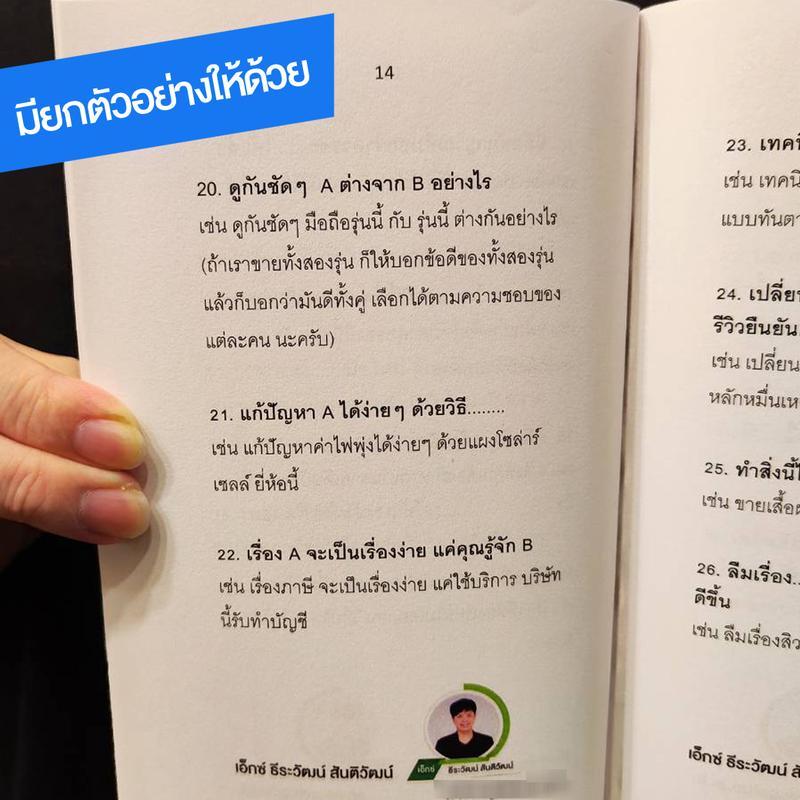 มียกตัวอย่างให้ด้วย
14
20. ดูกันชัดๆ A ต่างจาก B อย่างไร
เช่น ดูกันชัดๆ มือถือรุ่นนี้ กับ รุ่นนี้ ต่างกันอย่างไร
(ถ้าเราขายทั้งสองรุ่น ก็ให้บอกข้อดีของทั้งสองรุ่น
แล้วก็บอกว่ามันดีทั้งคู่ เลือกได้ตามความชอบของ
แต่ละคน นะครับ)
21. แก้ปัญหา A ได้ง่ายๆ ด้วยวิธี........
เช่น แก้ปัญหาค่าไฟพุ่งได้ง่ายๆ ด้วยแผงโซล่าร์
เซลล์ ยี่ห้อนี้
22. เรื่อง A จะเป็นเรื่องง่าย แค่คุณรู้จัก B
เช่น เรื่องภาษี จะเป็นเรื่องง่าย แค่ใช้บริการ บริษัท
นี้รับทำบัญชี
เอ็กซ์ ธีระวัฒน์ สันติวัฒน์
เอ็กซ์ ธีระวัฒน์ สันติวัฒน์
23. เทคนิ
เช่น เทคนิ
แบบทันตา
24. เปลี่ยน
รีวิวยืนยัน
เช่น เปลี่ยน
หลักหมื่นเห
25. ทำสิ่งนี้ไ
เช่น ขายเสื้อผ
26. ลืมเรื่อง..
ดีขึ้น
เช่น ลืมเรื่องสิว
เอ็กซ์ ธีระวัฒน์ สั